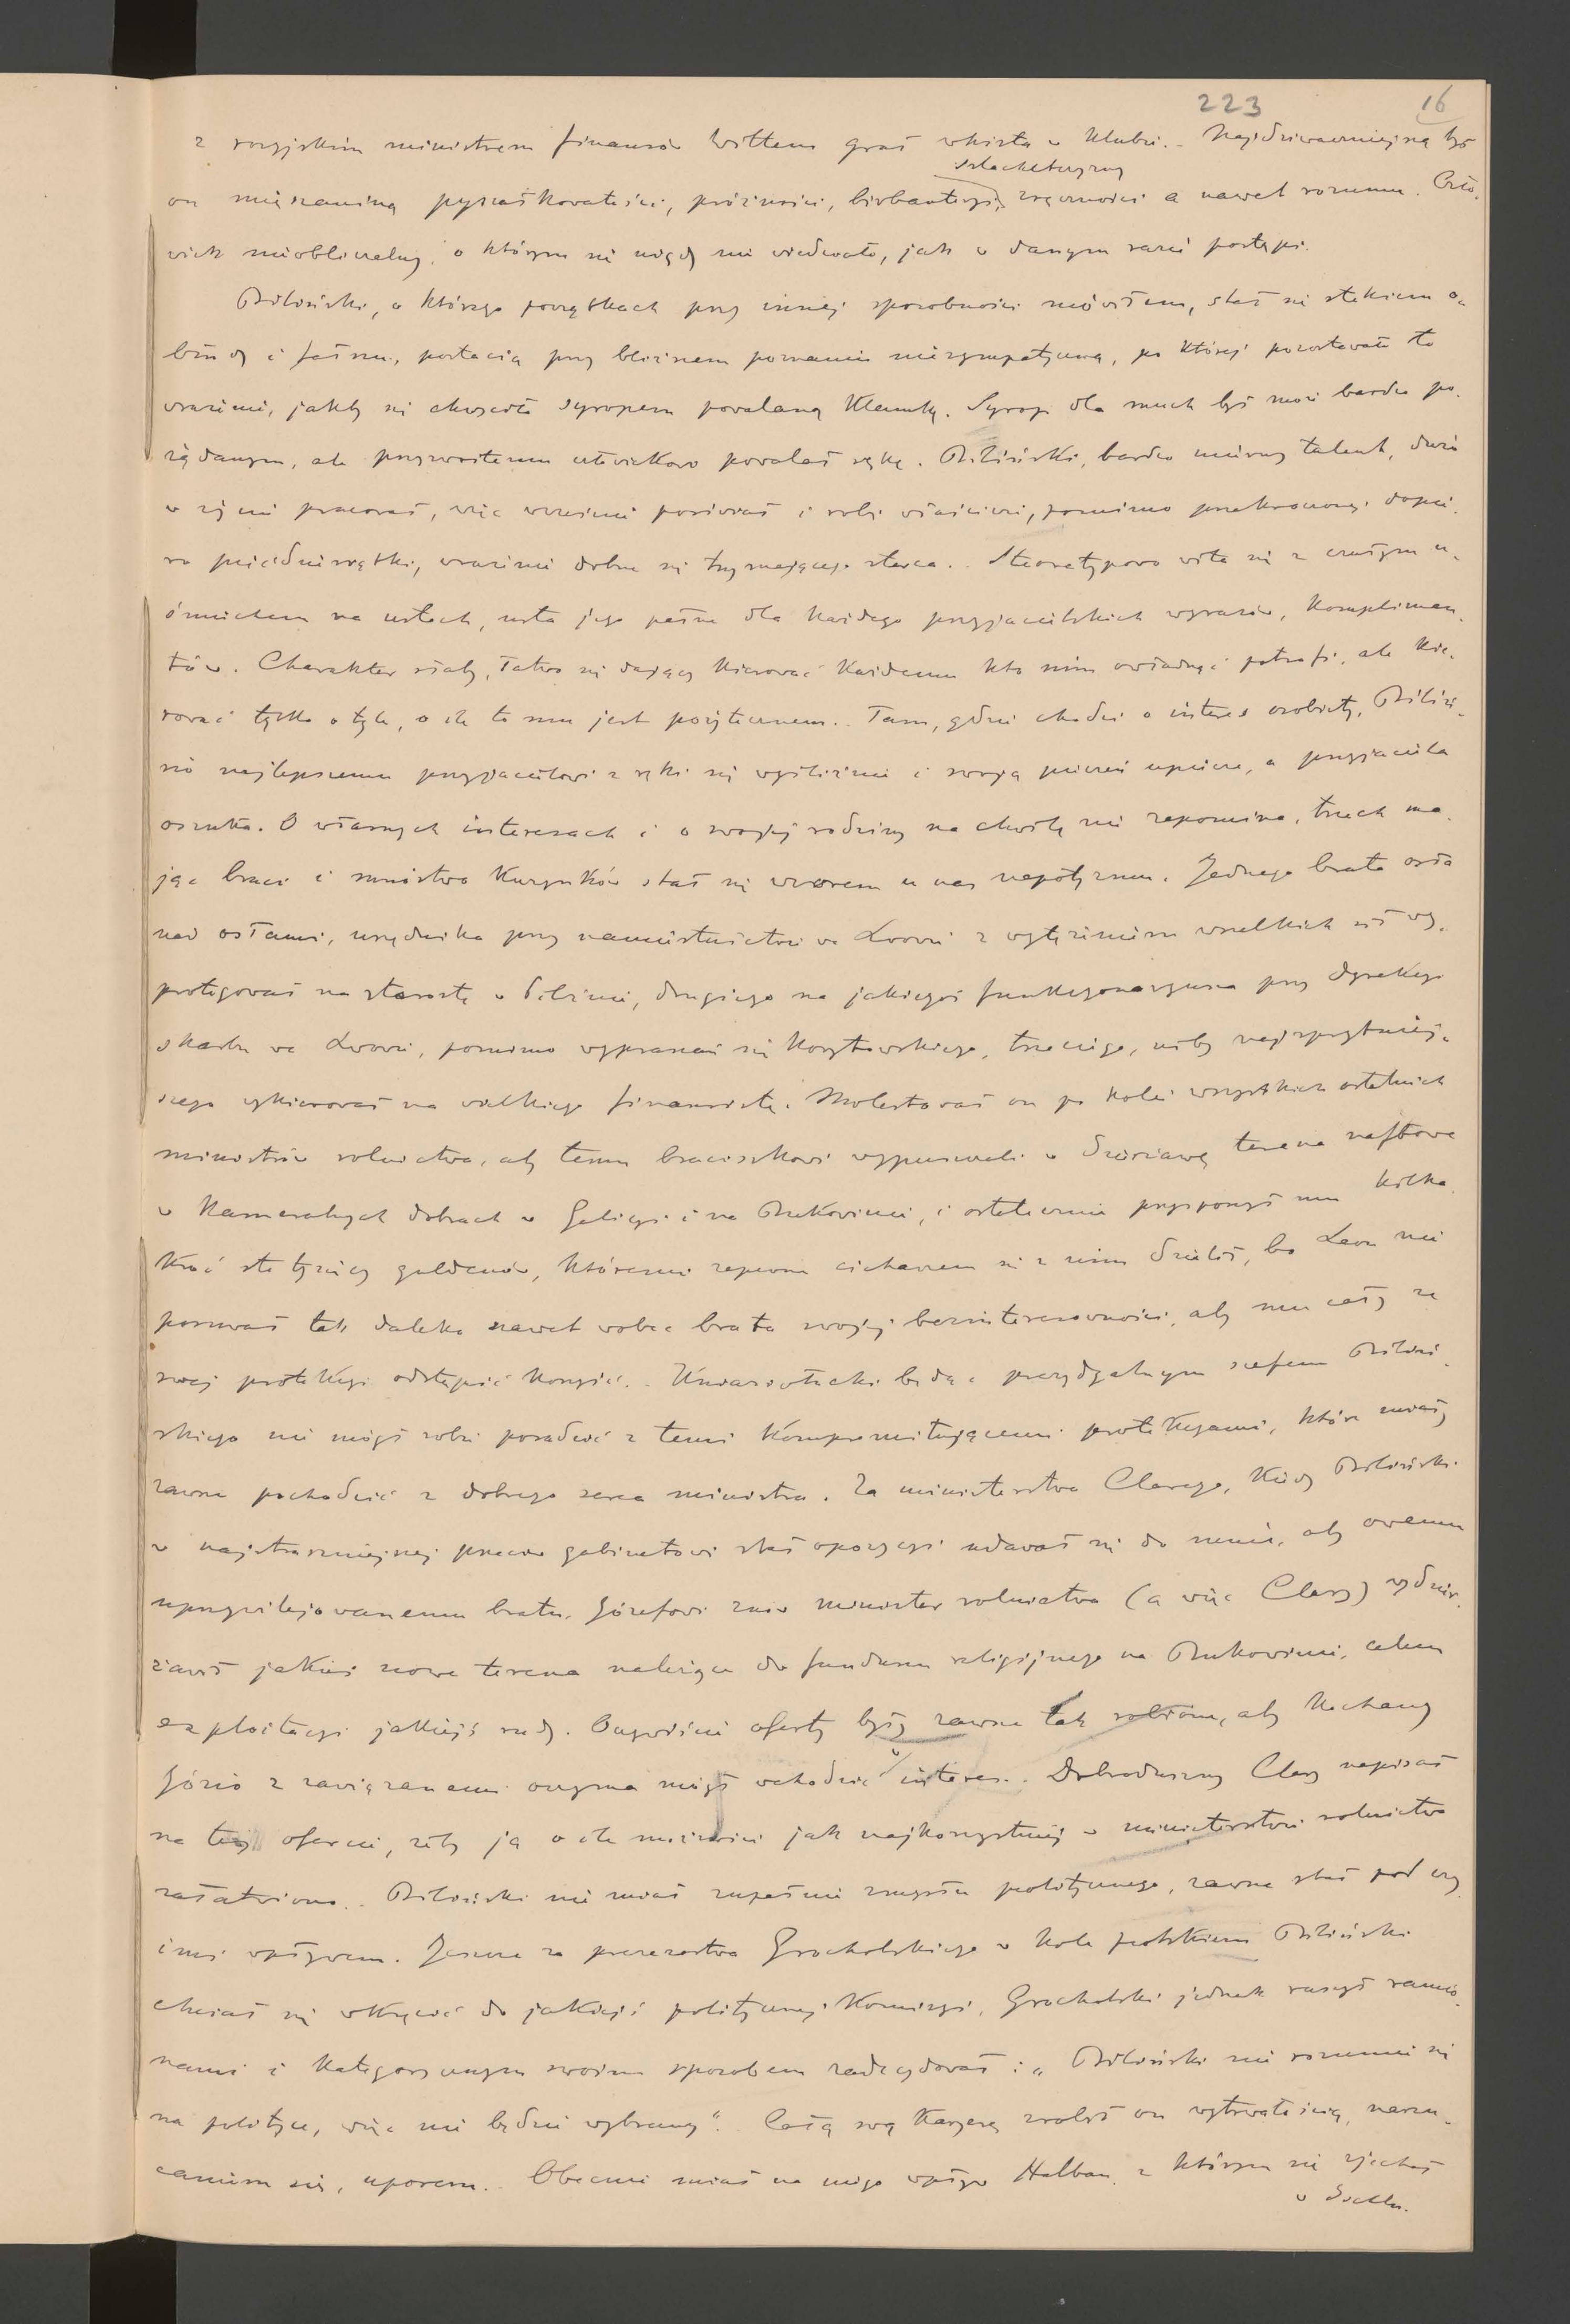 223 16
z rosyjskim ministrem finansów Wittem grał whista w klubie. Najdziwaczniejszą był
szlachetczyzny
on mięszaniną pyszałkowatości, próżności, birbanteryi, zręczności a nawet rozumu. Czło-
wiek nieobliczalny, o którym się nigdy nie wiedziało, jak w danym razie postąpi.
Biliński, o którego początkach przy innej sposobności mówiłem, stał się stekiem o-
błudy i fałszu, postacią przy bliższem poznaniu niesympatyczną, po której pozostawało to
wrażenie, jakby się chwyciło syropem powalaną klamkę. Syrop dla much był może bardzo po-
żądanym, ale przyzwoitemu człowiekowi powalał rękę. Biliński, bardzo mierny talent, dużo
w życiu pracował, więc wcześnie posiwiał i robi właściwie, pomimo przekroczonej dopie-
ro pięćdziesiątki, wrażenie dobrze się trzymającego starca. Stereotypowo wita się z czułym u-
śmiechem na ustach, usta jego pełne dla każdego przyjacielskich wyrazów, komplimen-
tów. Charakter słaby, łatwo się dający kierować każdemu kto nim owładnąć potrafi, ale kie-
rować tylko o tyle, o ile to mu jest pożytecznem. Tam, gdzie chodzi o interes osobisty, Biliń-
sio najlepszemu przyjacielowi z ręki się wyśliźnie i swoją pieczeń upiecze, a przyjaciela
oszuka. O własnych interesach i o swojej rodziny na chwilę nie zapomina, trzech ma-
jąc braci i mnóstwo kuzynków stał się wzorem u nas nepotyzmu. Jednego brata osła
nad osłami, urzędnika przy namiestnictwie we Lwowie z wytężeniem wszelkich sił wy-
protegował na starostę w Pilznie, drugiego na jakiegoś funkcyonaryusza przy dyrekcyi
skarbu we Lwowie, pomimo wypraszań się Korytowskiego, trzeciego, niby najsprytniej-
szego wykierował na wielkiego finansistę. Molestował on po kolei wszystkich ostatnich
ministrów rolnictwa, aby temu braciszkowi wypuszczali w dzierżawę terena naftowe
w kameralnych dobrach w Galicyi i na Bukowinie, i ostatecznie przysporzył mu kilka-
kroć sto tysięcy guldenów, któremi zapewne cichaczem się z nim dzielił, bo Leon nie
posuwał tak daleko nawet wobec brata swojej bezinteresowności, aby mu cały ze
swej protekcyi odstąpić korzyść. Kniaziołucki będąc prezydyalnym szefem Biliń-
skiego nie mógł sobie poradzić z temi kompromitującemi protekcyami, które miały
zawsze pochodzić z dobrego serca ministra. Za ministerstwa Clarego, kiedy Biliński
w najstraszniejszej przeciw gabinetowi stał opozycyi udawał się do mnie, aby owemu
uprzywilejowanemu bratu Józefowi znów minister rolnictwa (a więc Clary) wydzier-
żawił jakieś nowe terena należące do funduszu religijnego na Bukowinie, celem
exploitacyi jakiejś rudy. Oczywiście oferty były zawsze tak robione, aby kochany
Józio z zawiązanemi oczyma mógł wchodzić w interes. Dobroduszny Clary napisał
na tej ofercie, żeby ją o ile możności jak najkorzystniej w ministerstwie rolnictwa
załatwiono. Biliński nie miał zupełnie zmysłu politycznego, zawsze stał pod czy-
imś wpływem. Jeszcze za prezesostwa Grocholskiego w kole polskiem Biliński
chciał się wkręcić do jakiejś politycznej komisyi, Grocholski jednak ruszył ramio-
nami i kategorycznym swoim sposobem zadecydował: „Biliński nie rozumie się
na polityce, więc nie będzie wybrany". Całą swą karyerę zrobił on wytrwałością, narzu-
caniem się, uporem. Obecnie miał na niego wpływ Halban, z którym się zjechał
w Ischlu.